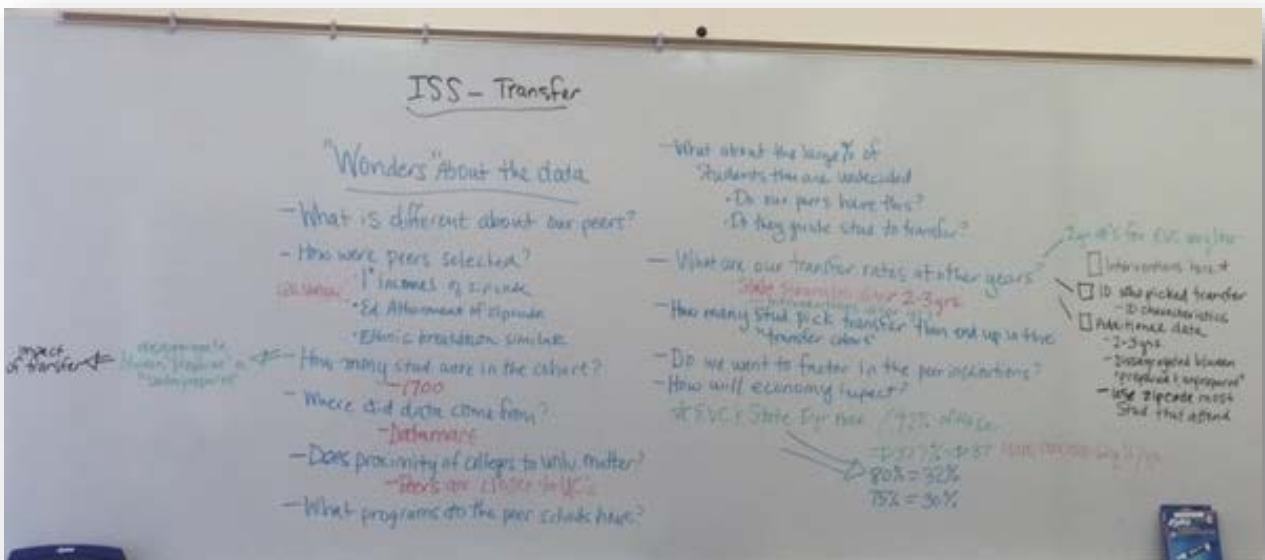 ISS - Transfer
"Wonders" About the data
- What is different about our peers?
- How were peers selected?
Incomes of zipcode
• Ed Attainment of zipcode
• Ethnic breakdown similar
- How many stud were in the cohort?
- 1700
- Where did data come from?
- Datamart
- Does proximity of colleges to univ. matter?
- Peers are closer to UC's
- What programs do the peer schools have?
impact
of transfer
- What about the large % of
Students that are undecided
• Do our peers have this?
• Do they guide stud to transfer?
- What are our transfer rates at other years?
State 2-3 yrs
- How many stud pick transfer than end up in the
"transfer cohort"
- Do we want to factor in the peer institutions?
- How will economy impact?
80% = 32%
75% = 30%
for EVC
Interventions
ID who picked transfer
- ID characteristics
Additional data
- 2-3 yrs
- Disaggregated between
"prepared & unprepared"
- Use zipcode most
Stud that attend